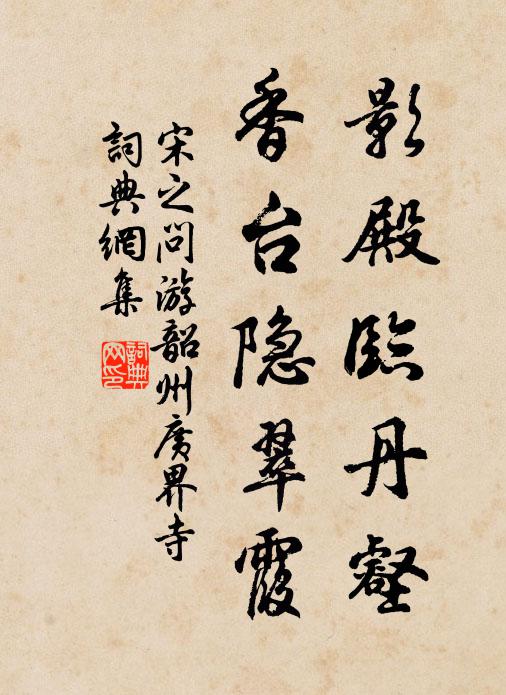 影殿臨丹壑
香台隐翠霞
宋之问游韶州廣界寺
詞典網集
詞典网印